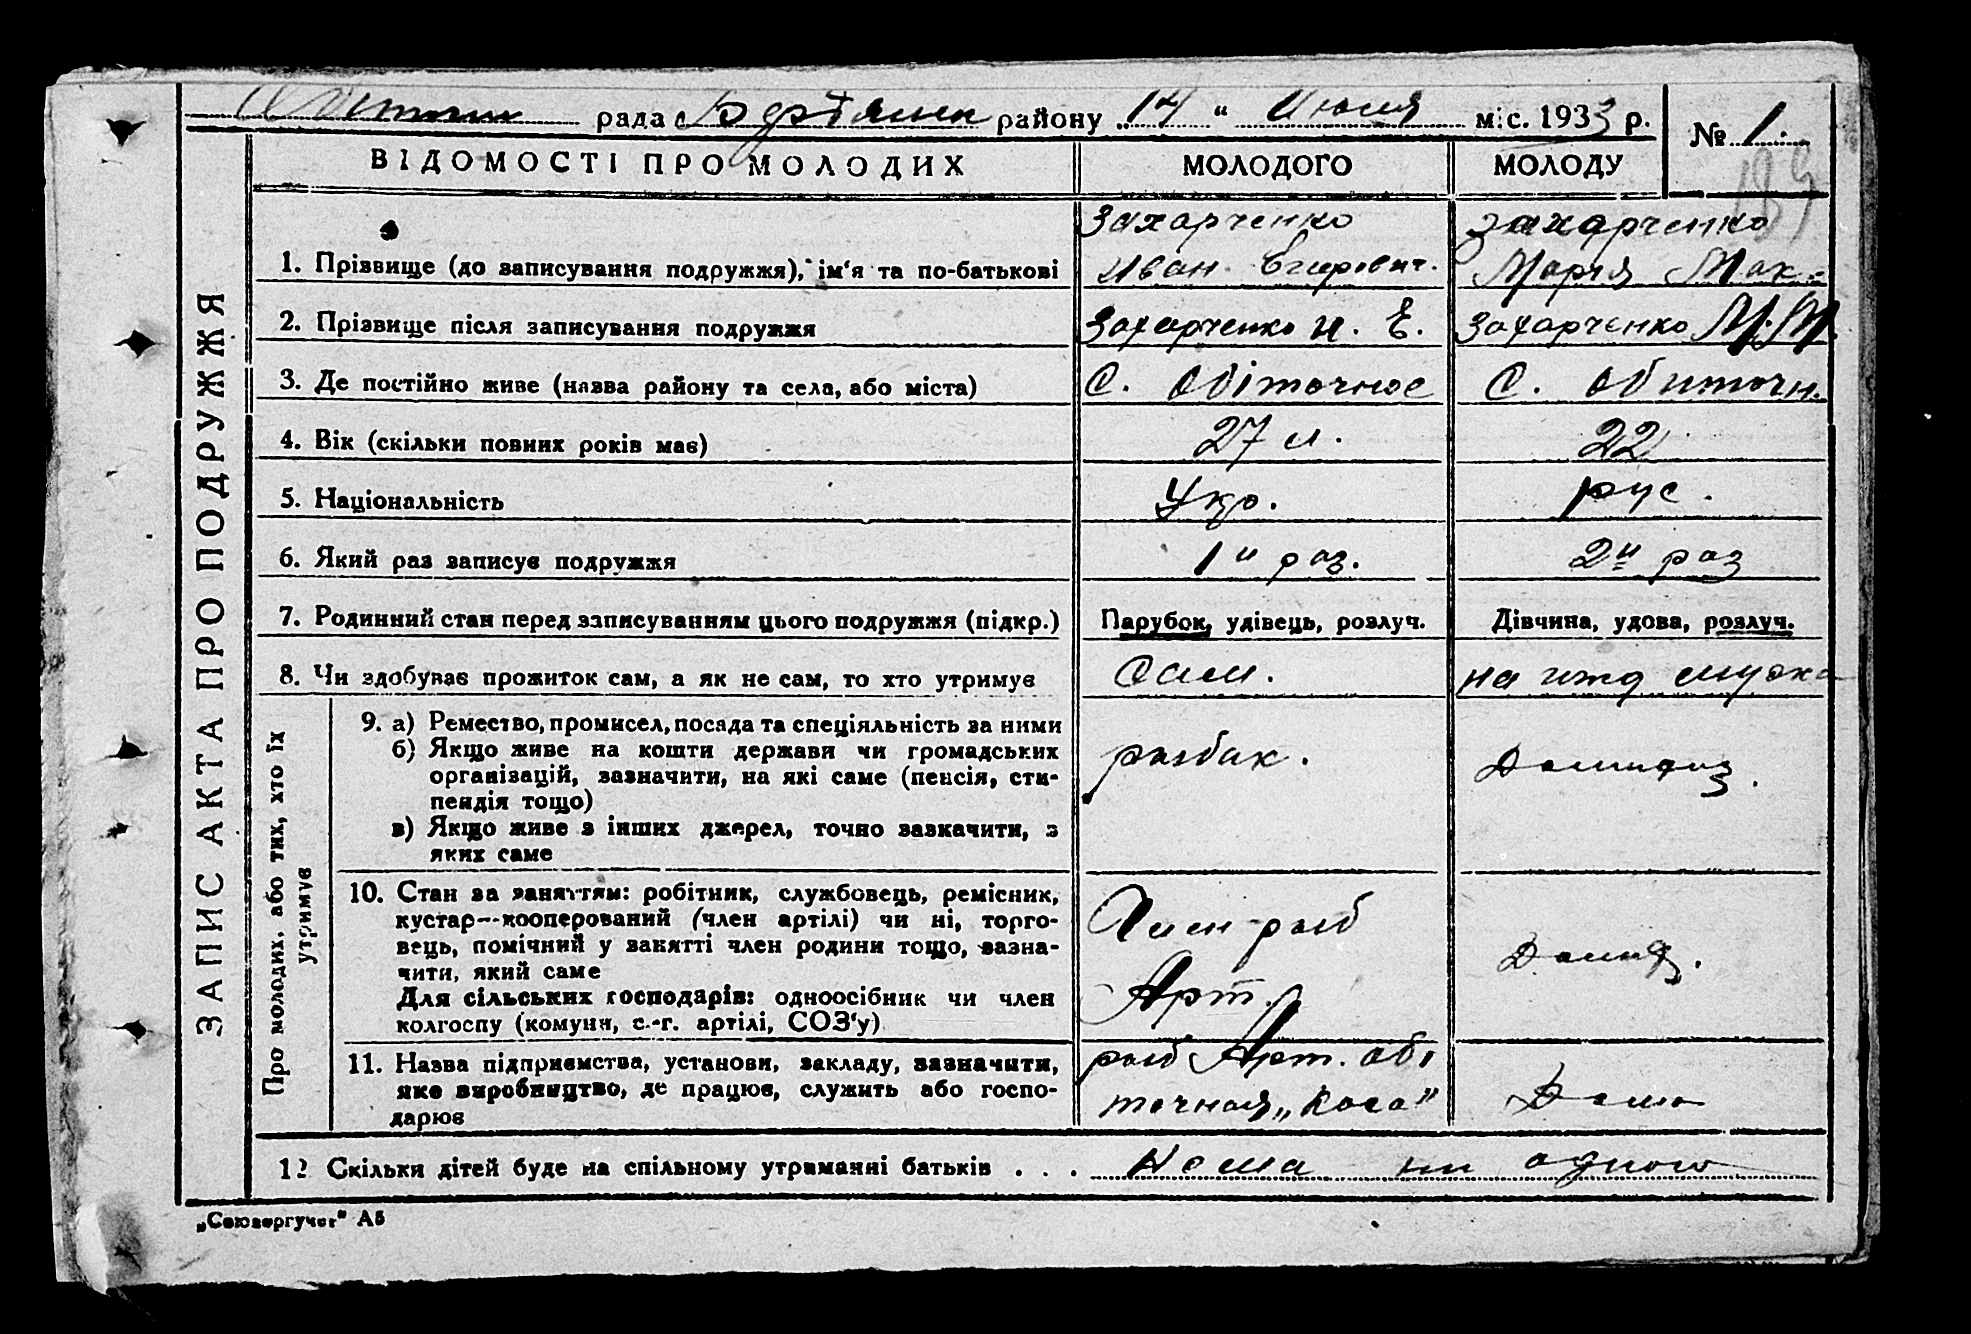 рада Бердянск району 14 " Июля міс. 1933 р.
№ 1.
189
ЗАПИС АКТА ПРО ПОДРУЖЖЯ
ВІДОМОСТІ ПРО МОЛОДИХ МОЛОДОГО МОЛОДУ
1. Прізвище (до записування подружжя), ім'я та по-батькові
Захарченко
Иван Егорович.
Захарченко
Мария Мак.
2. Прізвище після записування подружжя Захарченко И. Е. Захарченко М. М.
3. Де постійно живе (назва району та села, або міста) С. Обіточное С. Обиточн.
4. Вік (скільки повних років має) 27 л. 22
5. Національність Укр. рус.
6. Який раз записує подружжя 1й раз. 2й раз
7. Родинний стан перед записуванням цього подружжя (підкр.) Парубок, удівець, розлуч. Дівчина, удова, розлуч.
8. Чи здобуває прожиток сам, а як не сам, то хто утримує Сам. на ижд мужа
Про молодих, або тих, хто їх
утримує
9. а) Ремество, промисел, посада та спеціяльність за ними
б) Якщо живе на кошти держави чи громадських
організацій, зазначити, на які саме (пенсія, сти-
пендія тощо)
в) Якщо живе з інших джерел, точно зазначити, з
яких саме
рыбак.
Домохоз.
10. Стан за заняттям: робітник, службовець, ремісник,
кустар—кооперований (член артілі) чи ні, торго-
вець, помічний у занятті член родини тощо, зазна-
чити, який саме
Для сільських господарів: одноосібник чи член
колгоспу (комуни, с.-г. артілі, СОЗ'у)
Член рыб
Арт.
11. Назва підприємства, установи, закладу, зазначити,
яке виробництво, де працює, служить або госпо-
дарює
рыб Арт. обі
точная „Коса"
Дома
12 Скільки дітей буде на спільному утриманні батьків . . . Нема ни одного
„Союзоргучет" Аб